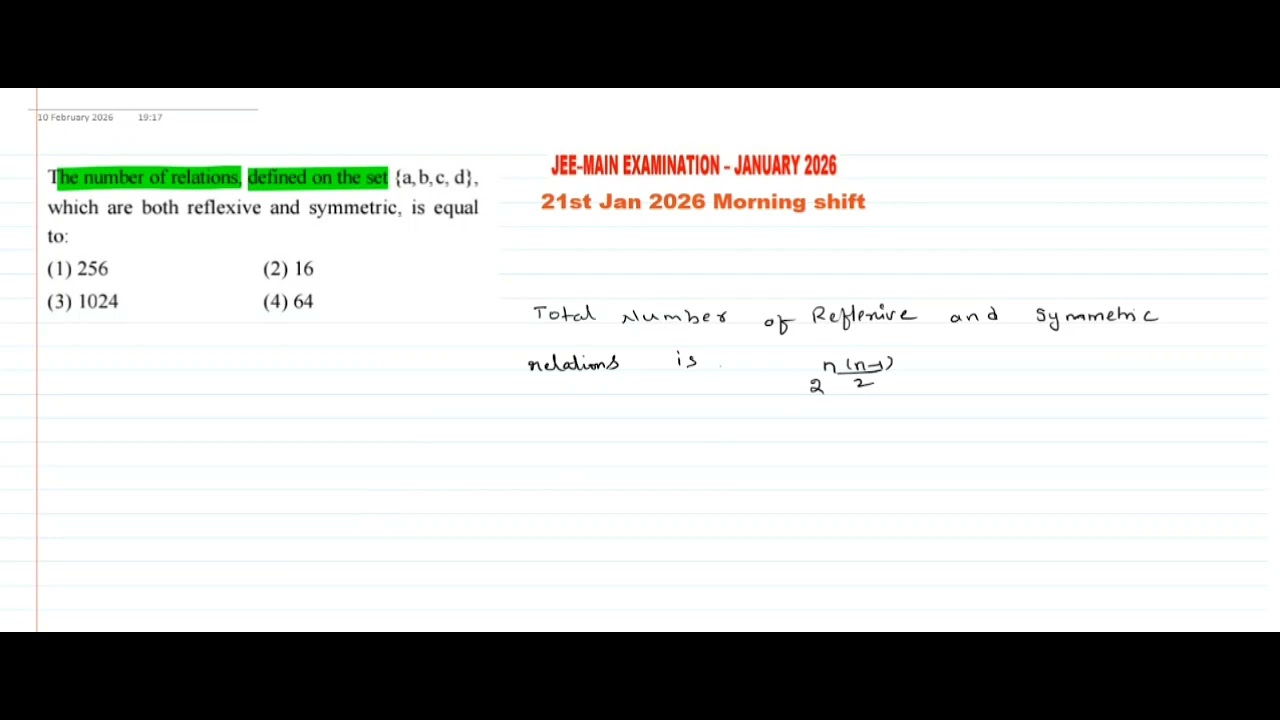 10 February 2026 19:17
The number of relations, defined on the set {a, b, c, d},
which are both reflexive and symmetric, is equal
to:
(1) 256 (2) 16
(3) 1024 (4) 64
JEE–MAIN EXAMINATION – JANUARY 2026
21st Jan 2026 Morning shift
Total Number of Reflexive and Symmetric
relations is 2^(n(n-1)/2)